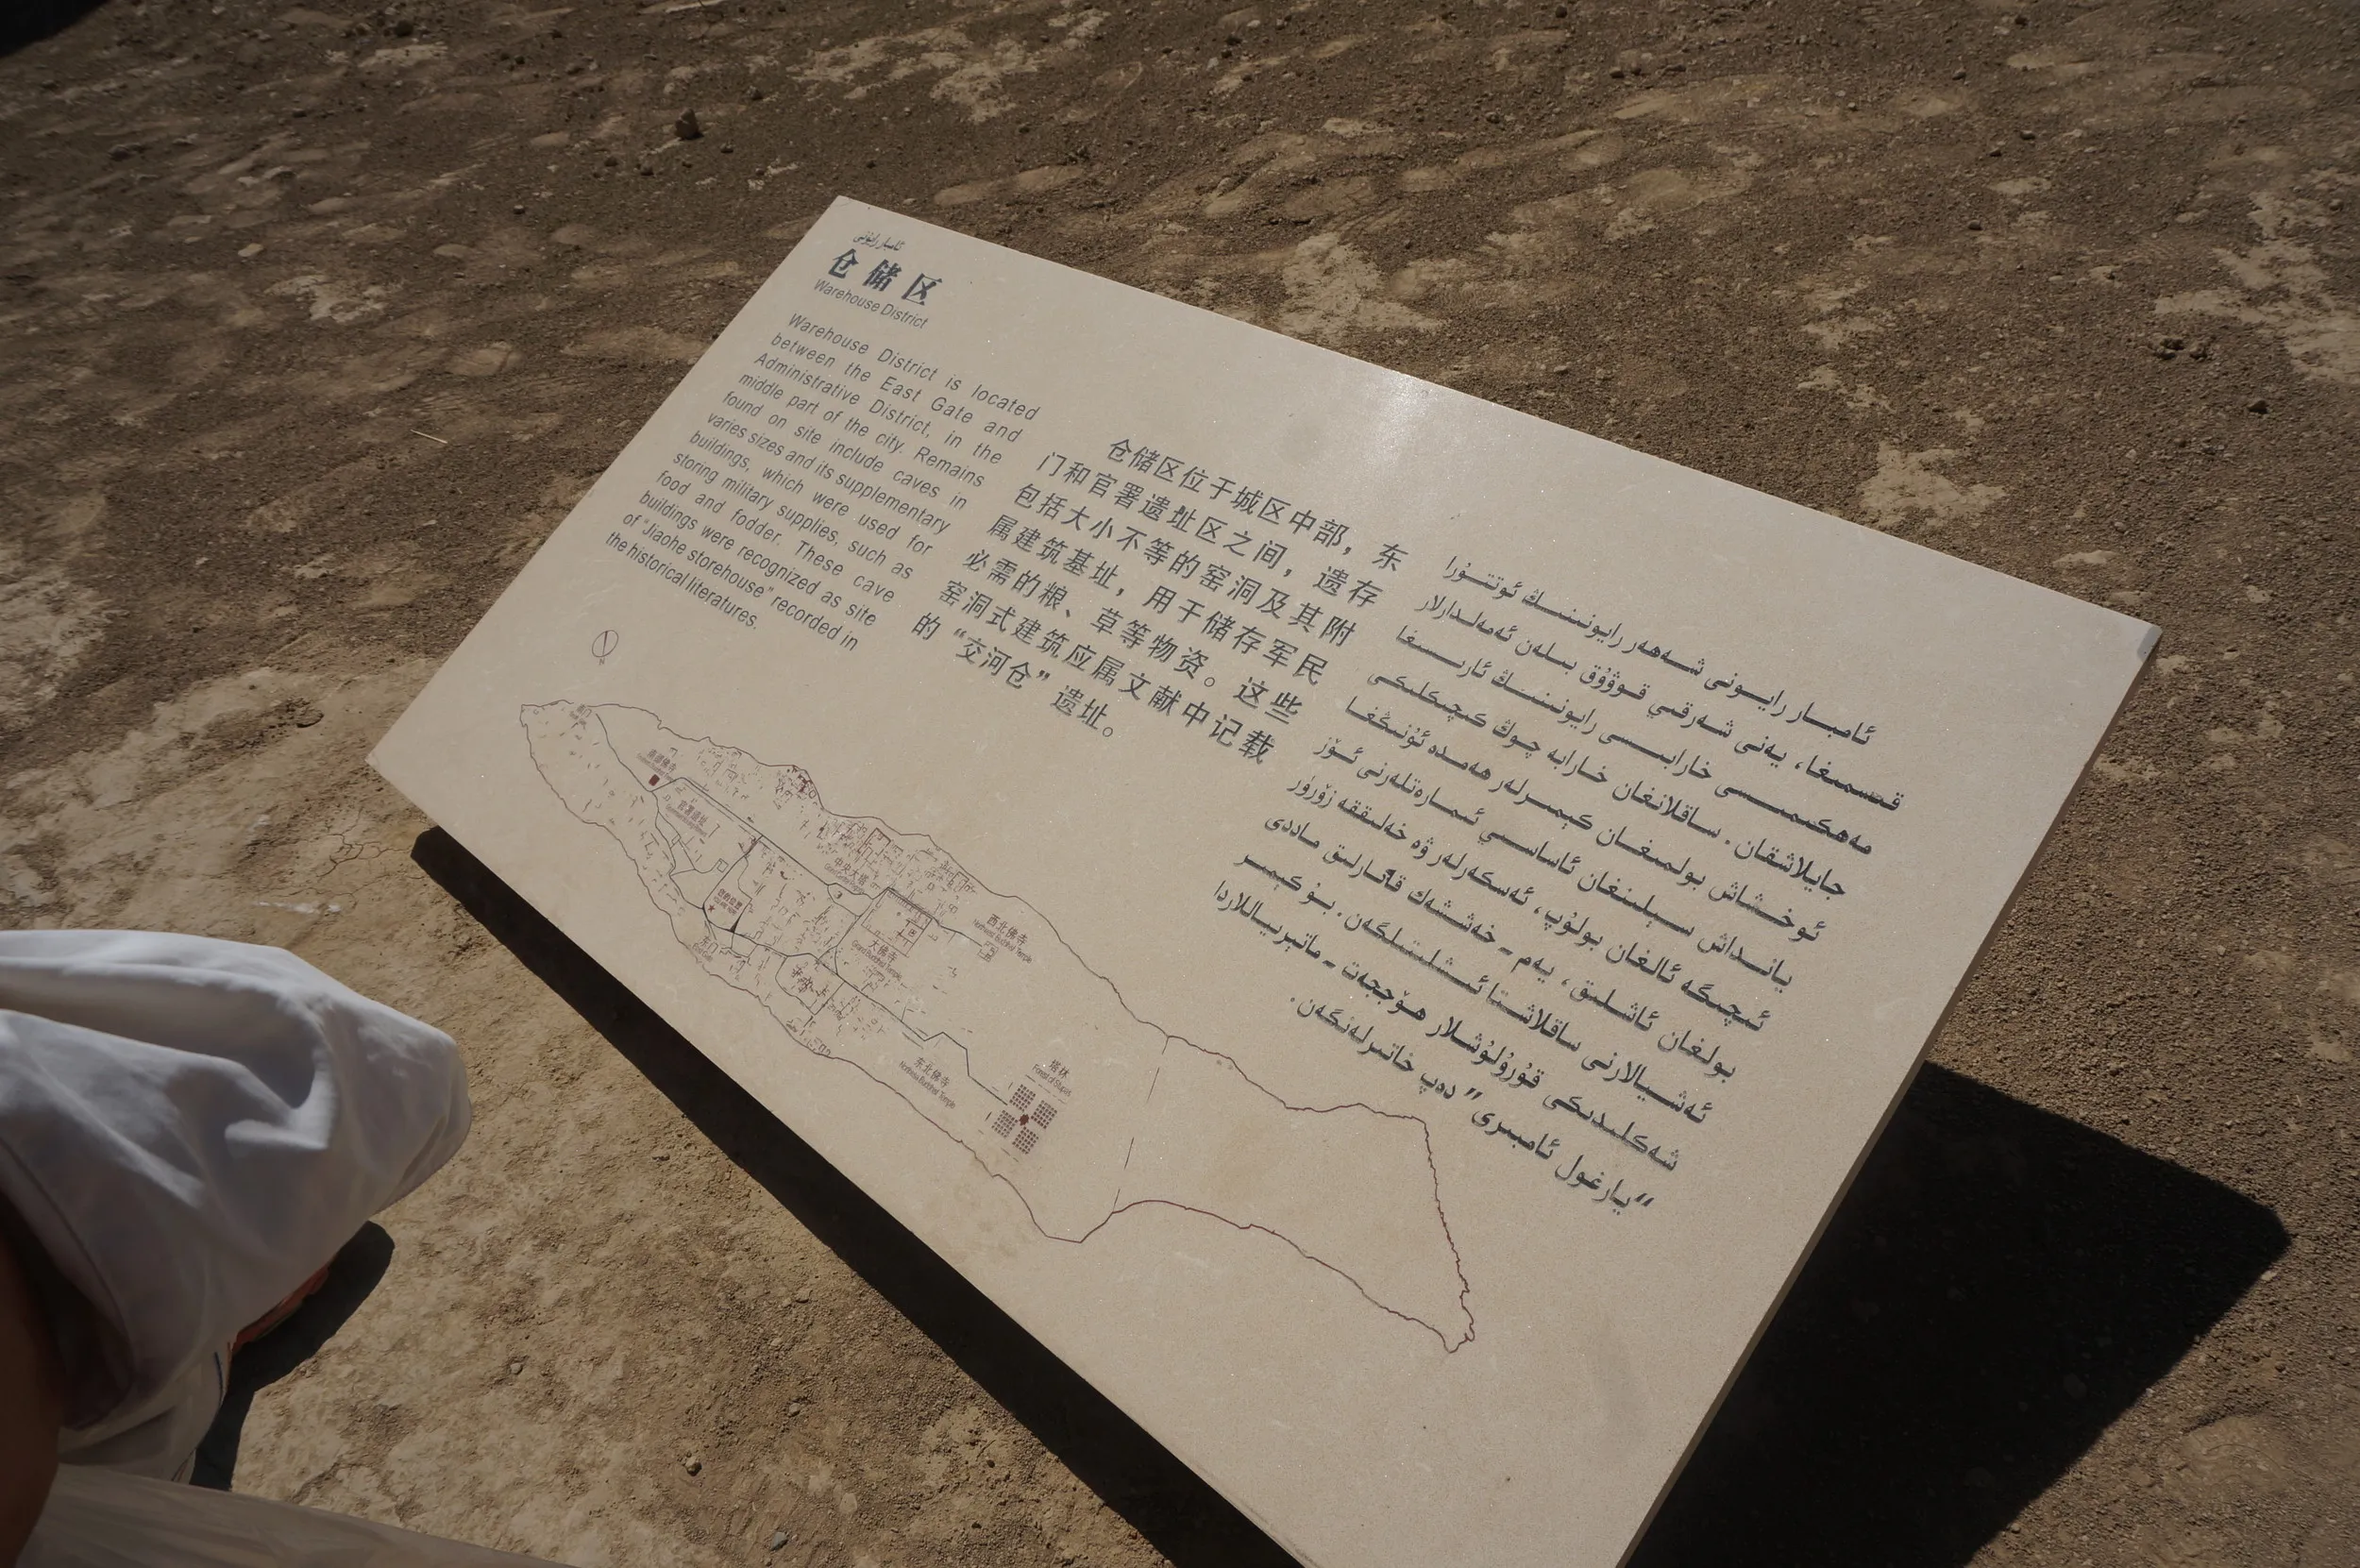 ئامبار رايونى
仓储区
Warehouse District
Warehouse District is located
between the East Gate and
Administrative District, in the
middle part of the city. Remains
found on site include caves in
varies sizes and its supplementary
buildings, which were used for
storing military supplies, such as
food and fodder. These cave
buildings were recognized as site
of "Jiaohe storehouse" recorded in
the historical literatures.
仓储区位于城区中部，东
门和官署遗址区之间，遗存
包括大小不等的窑洞及其附
属建筑基址，用于储存军民
必需的粮、草等物资。这些
窑洞式建筑应属文献中记载
的“交河仓”遗址。
ئامبار رايونى شەھەر رايونىنىڭ ئوتتۇرا
قىسمىغا، يەنى شەرقىي قوۋۇق بىلەن ئەمەلدارلار
مەھكىمىسى خارابىسى رايونىنىڭ ئارىسىغا
جايلاشقان. ساقلانغان خارابە چوڭ كىچىكلىكى
ئوخشاش بولمىغان كېمىرلەر ھەمدە ئۇنىڭغا
يانداش سېلىنغان ئاساسىي ئىمارەتلەرنى ئۆز
ئىچىگە ئالغان بولۇپ، ئەسكەرلەر ۋە خەلىققە زۆرۈر
بولغان ئاشلىق، يەم - خەشەك قاتارلىق ماددى
ئەشيالارنى ساقلاشتا ئىشلىتىلگەن. بۇ كېمىر
شەكلىدىكى قۇرۇلۇشلار ھۆججەت - ماتېرىياللاردا
“يارغول ئامبىرى” دەپ خاتىرلەنگەن.
南门
官署遗址
中央大塔
东门
大佛寺
西北佛寺
Northwest Buddhist Temple
东北佛寺
Northeast Buddhist Temple
塔林
Forest of Stupas